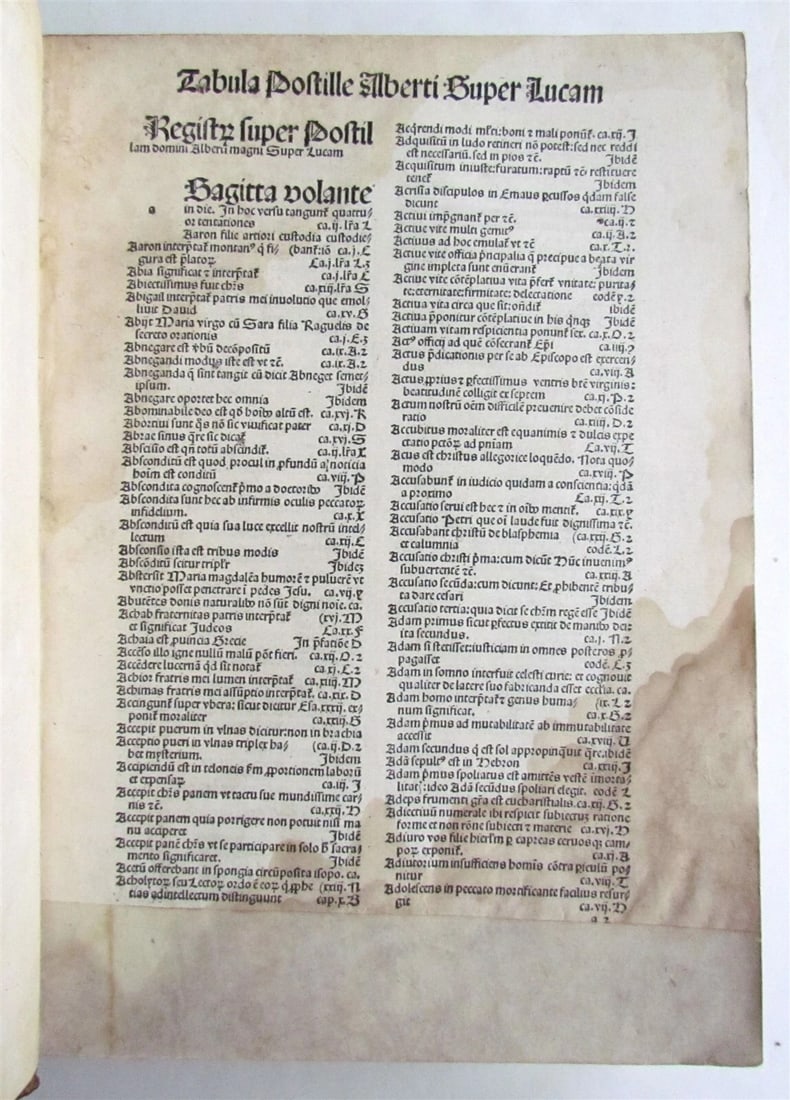 Tabula Postille Alberti Super Lucam
Registrꝝ super Postil
lam domini Alberti magni Super Lucam
Sagitta volante
a in die. In hoc versu tangunt᷑ quattu⸗
or tentationes ca.ij.lr̄a L
Aaron filie artiori custodia custodie⸗
Aaron interp̄tat᷑ montanꝰ q̄ fi⸗ (bant᷑:iō ca.j.C
gura est p̄latoꝝ Ca.j.lr̄a L.3
Abia significat ⁊ interp̄tat᷑ ca.j.lr̄a C
Abiectissimus fuit chr̄s ca.xij.lr̄a S
Abigail interp̄tat᷑ patris mei inuolutio que emol⸗
liuit Dauid ca.xv.G
Abijt Maria virgo cū Sara filia Raguelis de
secreto orationis ca.j.E.3
Abnegare est v̄bū decōpositū ca.ix.A.2
Abnegandi modus iste est vt ⁊c̄. ca.ix.A.2
Abneganda q̄ sint tangit cū dicit Abneget semet⸗
ipsum. Ibidē
Abnegare oportet hec omnia Ibidem
Abominabile deo est qd̄ hoībꝰ altū est. ca.xvj.K
Abortiui sunt q̄s nō sic viuificat pater ca.xj.D
Abrae sinus q̄re sic dicat᷑ ca.xvj.S
Abscisio est qn̄ totū abscindit᷑. ca.ij.lr̄a X
Absconditū est quod procul in ꝓfundū a notícia
hoīm est conditū ca.viij.P
Abscondita cognoscent᷑ p̄mo a doctoribꝰ Ibidē
Abscondita sunt hec ab infirmis oculis peccatoꝝ
infidelium. ca.x.X
Absconditū est quia sua luce excellit nostrū intel⸗
lectum ca.xij.C
Absconsio ista est tribus modis Ibidē
Abscōditū scitur triplr̄ Ibideʒ
Abstersit Maria magdalēa humorē ⁊ puluerē vt
vnctio posset penetrare ī pedes Jesu. ca.vij.y
Abutētes donis naturalibꝰ nō sūt digni noīe. ca.
Achab fraternitas patris interp̄tat᷑ (xvj.M
et significat Judeos Ca.xx.F
Achaia est ꝓuincia Grecie In p̄fatiōe D
Accēso illo igne nullū malū pōt fieri. ca.xij.O.2
Accēdere lucernā qd̄ sit notat᷑ ca.xj.C.2
Achior fratris mei lumen interp̄tat᷑ ca.xiiij.M
Achimas fratris mei assūptio interp̄tat᷑. ca.xix.D
Accingunt᷑ super vbera: sicut dicitur Esa.xxxij. ex⸗
ponit᷑ moraliter ca.xxiij.G
Accepit puerum in vlnas dicitur:non in brachia
Acceptio pueri in vlnas triplex ha⸗ (ca.ij.D.2
bet mysterium. Ibidem
Accipiendū est in teloneis f̄m ꝓportionem laborū
et expensaꝝ ca.iij. J
Accepit chr̄s panem vt tactu sue mundissime car⸗
nis ⁊c̄. ca.xxij.D
Accepit panem quia porrigere non potuit nisi ma
nu acciperet Ibidē
Accepit panē chr̄s vt se participare in solo ꝓ sacra⸗
mento significaret. Ibidē
Acetū offerebant in spongia circūposita isopo. ca.
Acholytoꝝ seu Lectoꝝ ordo ē eoꝝ q̄ ꝓphe (xxiij.N
tias ad intellectum distinguunt cap.x.B
Acq̄rendi modi mlt̄i:boni ⁊ mali ponūt᷑. ca.xij.J
Adquisitū in ludo retineri nō potest:sed nec reddi
est necessariū.sed in pios ⁊c̄. Ibidē
Acquisitum iniuste:furatum:raptū ⁊c̄ restituere
tenet᷑ Ibidem
Acrisia discipulos in Emaus ꝑcussos qd̄am false
dicunt ca.xxiiij.D
Actiui imp̄gnant᷑ per ⁊c̄. ca.ij.z
Actiue vite multi gemitꝰ ca.ij.A.2
Actiuus ad hoc emulat᷑ vt ⁊c̄ ca.x.T.2.
Actiue vite officia p̄ncipalia q̄ precipue a beata vir
gine impleta sunt enūerant᷑ Ibidem
Actiue vite cōtēplatiua vita p̄fert᷑ vnitate: purita⸗
te:eternitate:firmitate: delectatione codē y.2
Actiua vita circa que sit:on̄dit᷑ ibidē
Actiua p̄ponitur cōtēplatiue in his q̄nqꝫ Ibidē
Actiuam vitam respicientia ponunt᷑ sex. ca.x.O.2
Actꝰ officij ad quē cōsecrant᷑ Ep̄i ca.iiij.2
Actus p̄dicationis per se ab Episcopo est exercen⸗
dus ca.viij.A
Actus ꝓprius ⁊ ꝑfectissimus ventris btē virginis:
beatitudinē colligit ex septem ca.xj.P.2
Actum nostrū oēm difficilē preuenire debet cōside
ratio ca.xiiij.D.2
Accubitus moraliter est equanimis ⁊ dulcis expe
ctatio pctōꝝ ad pn̄iam Ca.vij.T
Acus est christus allegorice loquēdo. Nota quo⸗
modo ca.xviij.P
Accusabunt᷑ in iudicio quidam a conscientia: qd̄ā
a proximo Ca.xij.T.2
Accusatio serui est hec ⁊ in oībꝰ mentit᷑. ca.xix.p
Accusatio Petri que oī laude fuit dignissima ⁊c̄.
Accusabant christū de blasphemia (ca.xxij.G.2
et calumnia codē.L.2
Accusatio christi p̄ma: cum dicūt Hūc inuenimꝰ
subuertentē ⁊c̄. ca.xxiij.A
Accusatio secūda: cum dicunt: Et ꝓhibentē tribu⸗
ta dare cesari Ibidem
Accusatio tertia: quia dicit se chr̄m regē esse Ibidē
Adam primus sicut ꝑfectus exijt de manibꝰ dei: 
ita secundus. ca.j. N.2
Adam si stetisset:iusticiam in omnes posteros ꝓ⸗
pagasset codē. C.3
Adam in somno interfuit celesti curie: et cognouit
qualiter de latere suo fabricanda esset ecclīa. ca.
Adam homo interp̄tat᷑ ⁊ genus huma⸗ (ix.L.2
num significat. ca.x.G.2
Adam p̄mus ad mutabilitatē ab immutabilitate
accessit ca.xviij.U
Adam secundus q̄ est sol appropinquit q̄re.ibidē
Adā sepultꝰ est in Hebron ca.xxiij.J
Adam p̄mus spoliatus est amittēs vestē immorta⸗
litatꝭ:ideo Adā secūdus spoliari elegit. codē L
Adeps frumenti gr̄a est eucharistialis.ca.xij.G.2
Adiectiuū numerale ibi respicit subiectuꝫ ratione
forme et non rōne subiecti ⁊ materie ca.xvj.D
Adiuro vos filie hierl̄m ꝑ capreas ceruosqꝫ cam⸗
poꝝ exponit᷑. ca.xj.A
Adiutorium insufficiens homīs cōtra ꝑiculū po⸗
nitur ca.viij.T
Adolescens in peccato mortificante facilius resur⸗
git ca.vij.D
a 2